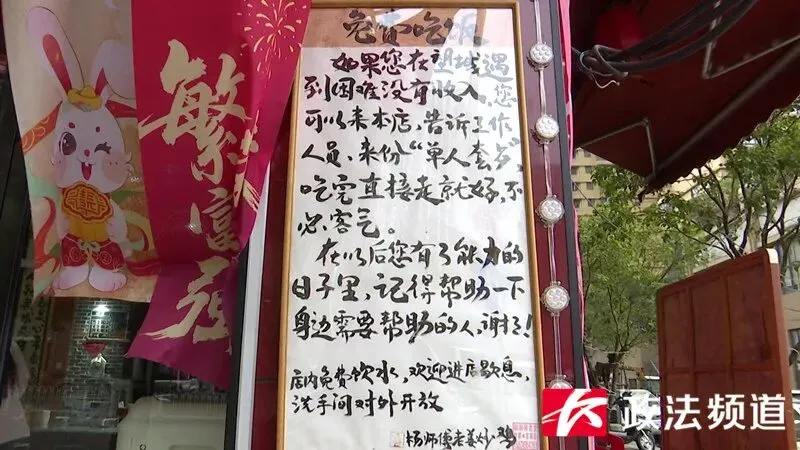 免费吃饭
如果您在望城遇
到困难没有收入,您
可以来本店,告诉工作
人员,来份“单人套餐”,
吃完直接走就好,不
必客气。
在以后您有了能力的
日子里,记得帮助一下
身边需要帮助的人,谢了!
店内免费饮水,欢迎进店歇息,
洗手间对外开放
杨师傅老姜炒鸡
繁
富
强
政法频道